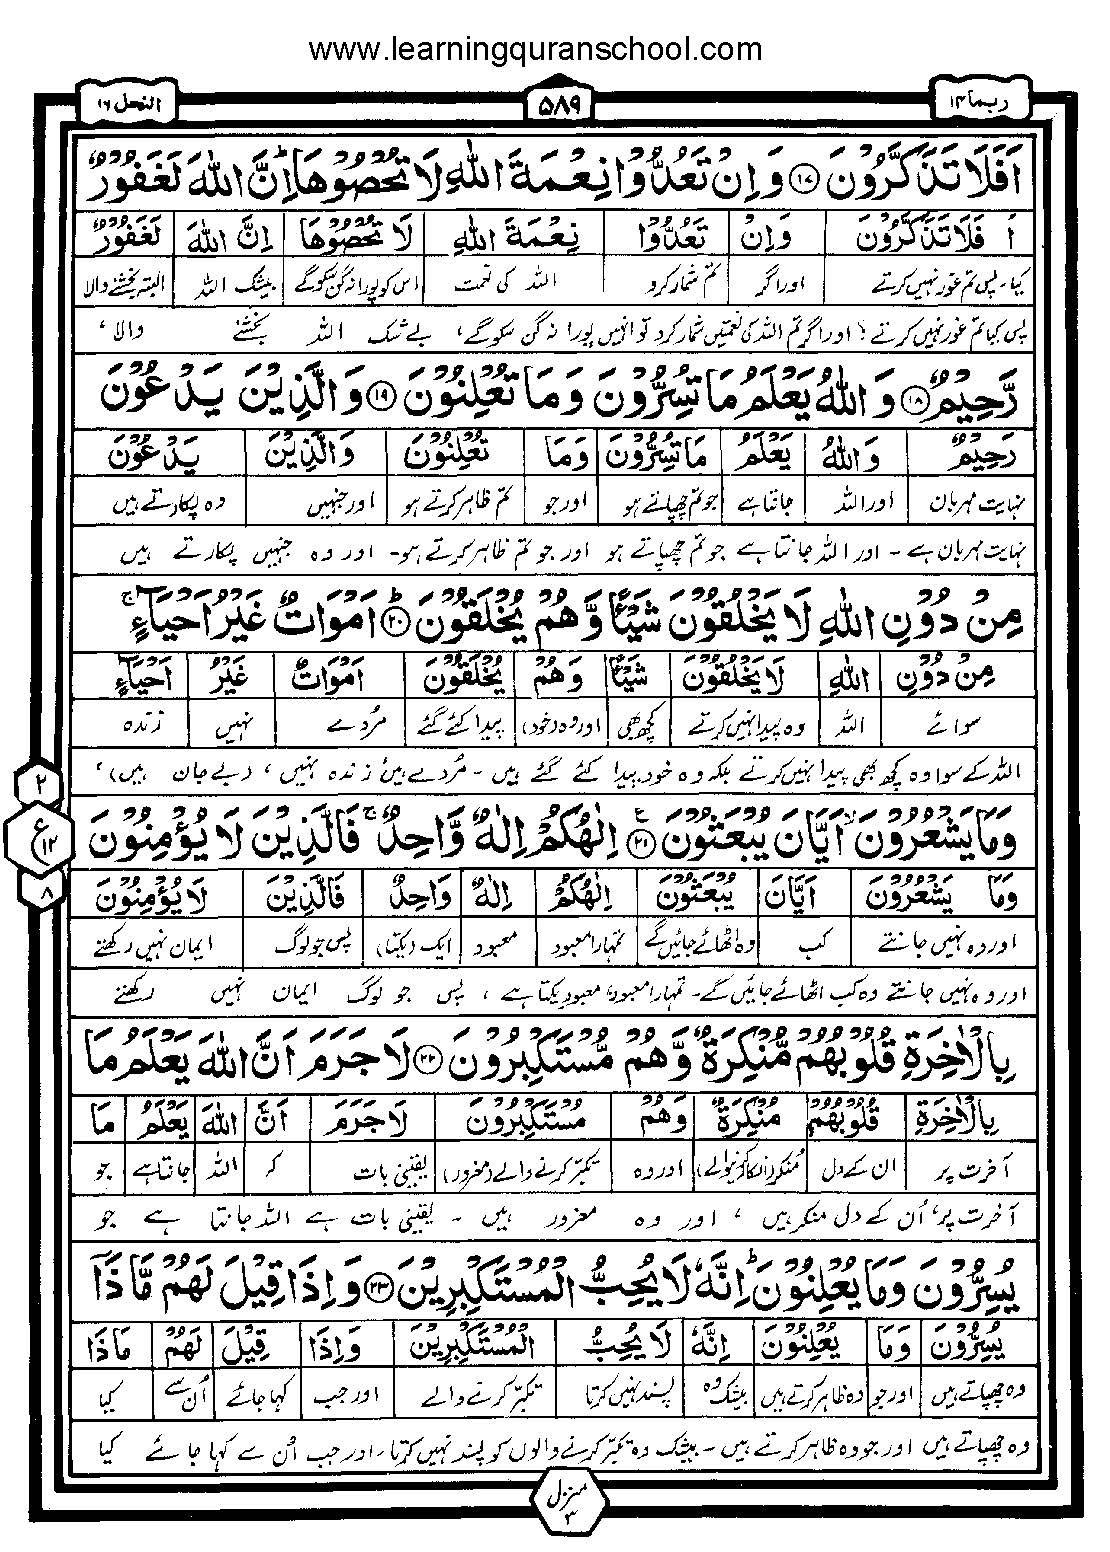 www.learningquranschool.com
ربما ۱۴
۵۸۹
النحل ۱۶
اَفَلَا تَذَكَّرُوْنَ ﴿۱۷﴾ وَاِنْ تَعُدُّوْا نِعْمَةَ اللهِ لَا تُحْصُوْهَا ؕ اِنَّ اللهَ لَغَفُوْرٌ
اَ فَلَا تَذَكَّرُوْنَ وَاِنْ تَعُدُّوْا نِعْمَةَ اللهِ لَا تُحْصُوْهَا اِنَّ اللهَ لَغَفُوْرٌ
کیا۔ پس تم غور نہیں کرتے اور اگر تم شمار کرو اللہ کی نعمت اس کو پورا نہ گن سکو گے بیشک اللہ البتہ بخشنے والا
پس کیا تم غور نہیں کرتے؟ اور اگر تم اللہ کی نعمتیں شمار کرو تو انہیں پورا نہ گن سکو گے، بے شک اللہ بخشنے والا،
رَّحِيْمٌ ﴿۱۸﴾ وَاللهُ يَعْلَمُ مَا تُسِرُّوْنَ وَمَا تُعْلِنُوْنَ ﴿۱۹﴾ وَالَّذِيْنَ يَدْعُوْنَ
رَحِيْمٌ وَاللهُ يَعْلَمُ مَا تُسِرُّوْنَ وَمَا تُعْلِنُوْنَ وَالَّذِيْنَ يَدْعُوْنَ
نہایت مہربان اور اللہ جانتا ہے جو تم چھپاتے ہو اور جو تم ظاہر کرتے ہو اور جنہیں وہ پکارتے ہیں
نہایت مہربان ہے۔ اور اللہ جانتا ہے جو تم چھپاتے ہو اور جو تم ظاہر کرتے ہو۔ اور وہ جنہیں پکارتے ہیں
مِنْ دُوْنِ اللهِ لَا يَخْلُقُوْنَ شَيْـًٔا وَّهُمْ يُخْلَقُوْنَ ؕ﴿۲۰﴾ اَمْوَاتٌ غَيْرُ اَحْيَآءٍ ۚ
مِنْ دُوْنِ اللهِ لَا يَخْلُقُوْنَ شَيْـًٔا وَهُمْ يُخْلَقُوْنَ اَمْوَاتٌ غَيْرُ اَحْيَآءٍ
سوائے اللہ وہ پیدا نہیں کرتے کچھ بھی اور وہ (خود) پیدا کئے گئے مُردے نہیں زندہ
اللہ کے سوا وہ کچھ بھی پیدا نہیں کرتے بلکہ وہ خود پیدا کئے گئے ہیں۔ مُردے ہیں، زندہ نہیں، (بے جان ہیں)،
۲
ع ۱۲
۸
وَمَا يَشْعُرُوْنَ ۙ اَيَّانَ يُبْعَثُوْنَ ﴿۲۱﴾ اِلٰهُكُمْ اِلٰهٌ وَّاحِدٌ ۚ فَالَّذِيْنَ لَا يُؤْمِنُوْنَ
وَمَا يَشْعُرُوْنَ اَيَّانَ يُبْعَثُوْنَ اِلٰهُكُمْ اِلٰهٌ وَاحِدٌ فَالَّذِيْنَ لَا يُؤْمِنُوْنَ
اور وہ نہیں جانتے کب وہ اٹھائے جائیں گے تمہارا معبود معبود ایک (یکتا) پس جو لوگ ایمان نہیں رکھتے
اور وہ نہیں جانتے وہ کب اٹھائے جائیں گے۔ تمہارا معبود، معبود یکتا ہے، پس جو لوگ ایمان نہیں رکھتے
بِالْاٰخِرَةِ قُلُوْبُهُمْ مُّنْكِرَةٌ وَّهُمْ مُّسْتَكْبِرُوْنَ ﴿۲۲﴾ لَا جَرَمَ اَنَّ اللهَ يَعْلَمُ مَا
بِالْاٰخِرَةِ قُلُوْبُهُمْ مُنْكِرَةٌ وَهُمْ مُسْتَكْبِرُوْنَ لَا جَرَمَ اَنَّ اللهَ يَعْلَمُ مَا
آخرت پر ان کے دل منکر (انکار کرنیوالے) اور وہ تکبر کرنے والے (مغرور) یقینی بات کہ اللہ جانتا ہے جو
آخرت پر، اُن کے دل منکر ہیں، اور وہ مغرور ہیں۔ یقینی بات ہے اللہ جانتا ہے جو
يُسِرُّوْنَ وَمَا يُعْلِنُوْنَ ؕ اِنَّهٗ لَا يُحِبُّ الْمُسْتَكْبِرِيْنَ ﴿۲۳﴾ وَاِذَا قِيْلَ لَهُمْ مَّاذَآ
يُسِرُّوْنَ وَمَا يُعْلِنُوْنَ اِنَّهٗ لَا يُحِبُّ الْمُسْتَكْبِرِيْنَ وَاِذَا قِيْلَ لَهُمْ مَاذَا
وہ چھپاتے ہیں اور جو وہ ظاہر کرتے ہیں بیشک وہ پسند نہیں کرتا تکبر کرنے والے اور جب کہا جائے اُن سے کیا
وہ چھپاتے ہیں اور جو وہ ظاہر کرتے ہیں۔ بیشک وہ تکبر کرنے والوں کو پسند نہیں کرتا۔ اور جب اُن سے کہا جائے کیا
منزل ۳